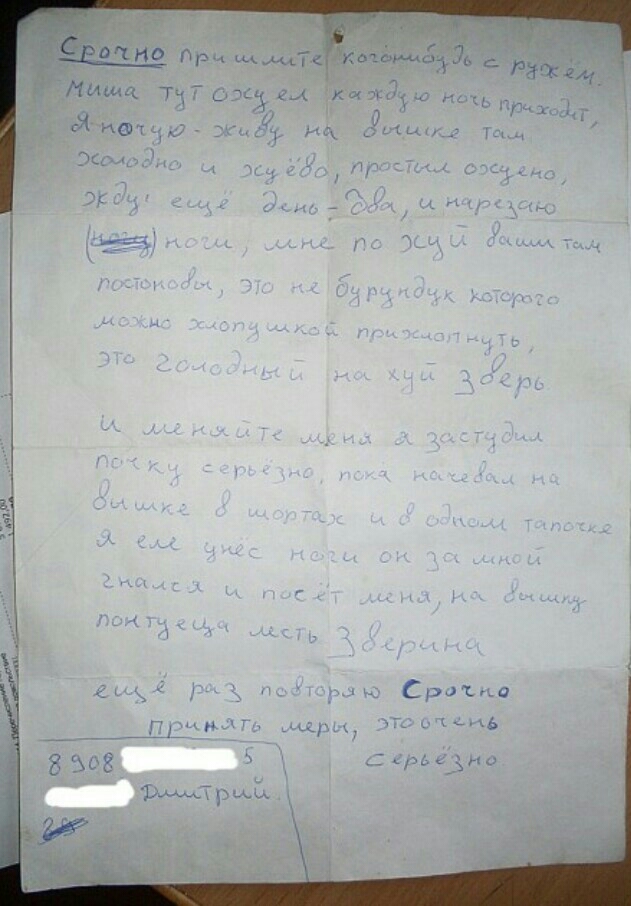 Срочно пришлите когонибудь с ружьём.
миша тут охуел каждую ночь приходит,
я ночую - живу на вышке там
холодно и хуёво, простыл охуено,
жду ещё день - два, и нарезаю
ноги, мне по хуй ваши там
постоновы, это не бурундук которого
можно хлопушкой прихлопнуть,
это голодный на хуй Зверь
И меняйте меня я застудил
почку серьёзно, пока начевал на
вышке в шортах и в одном тапочке
я еле унёс ноги он за мной
гнался и посёт меня, на вышку
понтуеца лесть Зверина
ещё раз повторяю Срочно
принять меры, это очень
серьёзно
8908 5
Дмитрий.